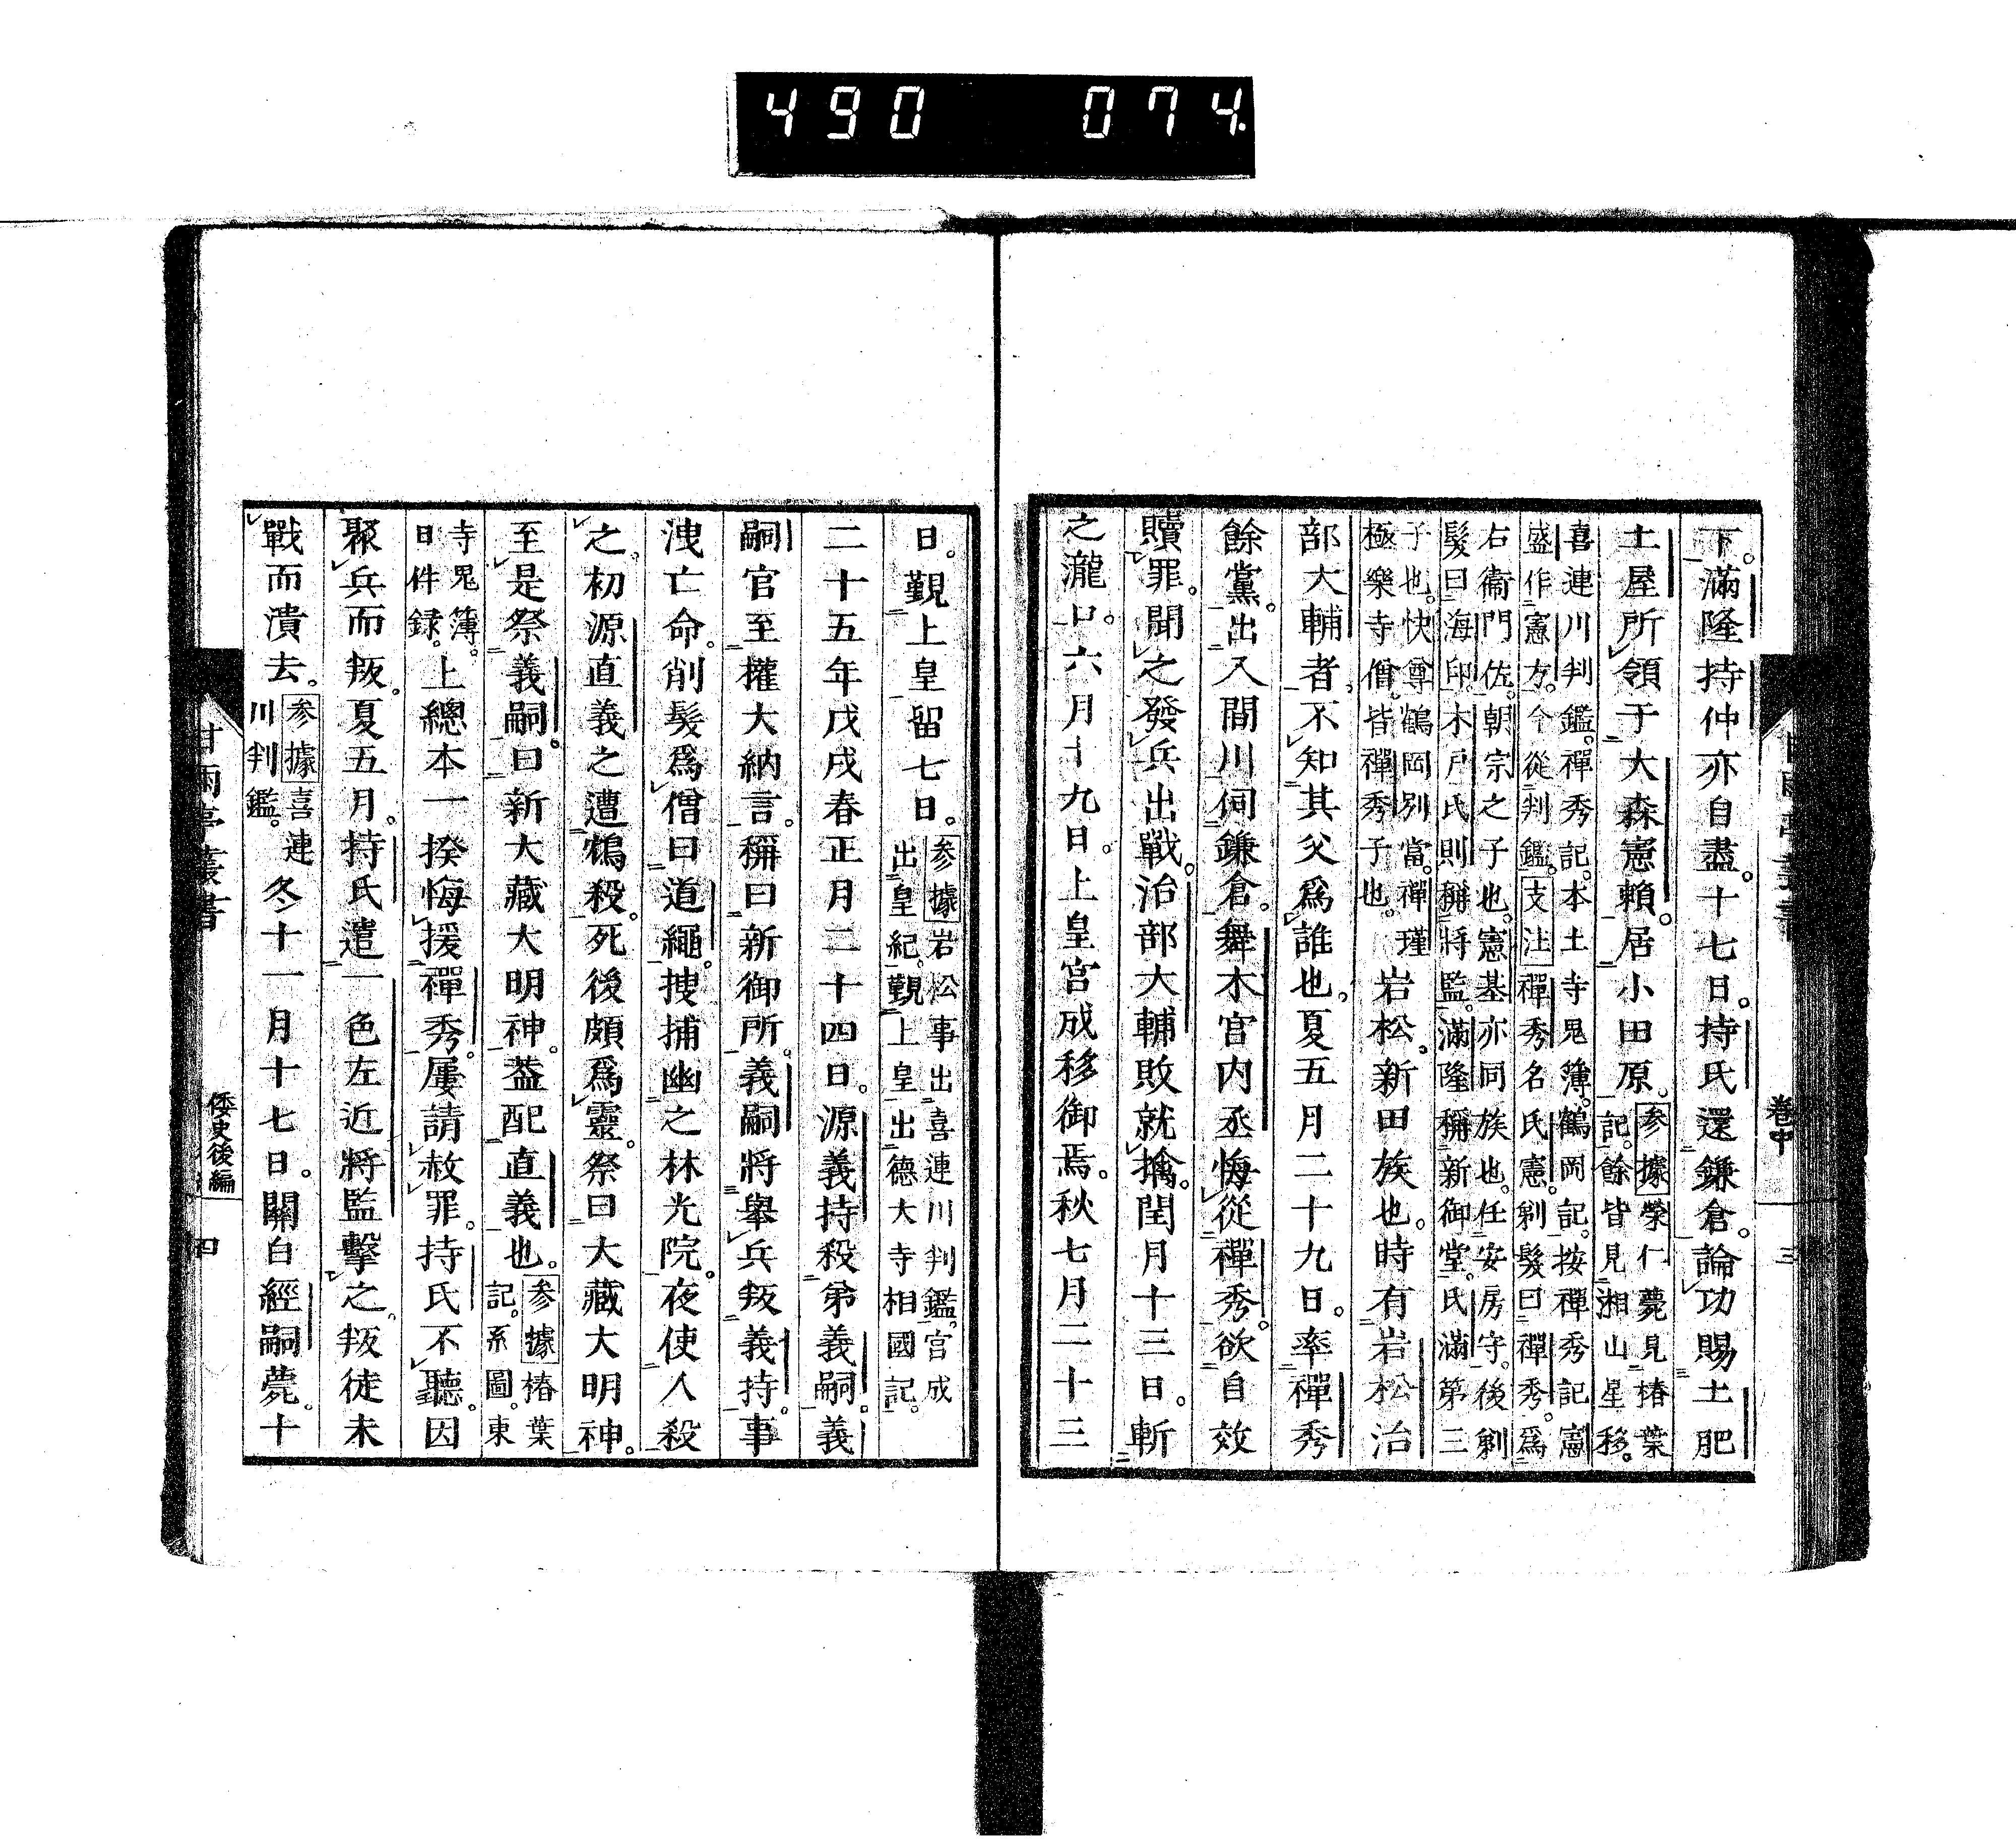 490 074
下。滿隆持仲亦自盡。十七日。持氏還鎌倉。論功賜土肥
土屋所領于大森憲賴。居小田原。參據榮仁薨見椿葉記。餘皆見湘山星移。
喜連川判鑑。禪秀記。本土寺鬼簿。鶴岡記。按禪秀記憲
盛作憲方。今從判鑑。支注禪秀名氏憲。剃髮曰禪秀。爲
右衞門佐。朝宗之子也。憲基亦同族也。任安房守。後剃
髮曰海印。木戶氏則稱將監。滿隆稱新御堂。氏滿第三
子也。快尊鶴岡別當。禪瑾
極樂寺僧。皆禪秀子也。
岩松。新田族也。時有岩松治
部大輔者。不知其父爲誰也。夏五月二十九日。率禪秀
餘黨。出入間川。伺鎌倉。舞木宮內丞悔從禪秀。欲自效
贖罪。聞之發兵出戰。治部大輔敗就擒。閏月十三日。斬
之瀧口。六月十九日。上皇宮成移御焉。秋七月二十三
卷中
三
日。覲上皇留七日。參據岩松事出喜連川判鑑。宮成出皇紀。覲上皇出德大寺相國記。
二十五年戊戌春正月二十四日。源義持殺弟義嗣。義
嗣官至權大納言。稱曰新御所。義嗣將舉兵叛義持。事
洩亡命。削髮爲僧曰道繩。搜捕幽之林光院。夜使人殺
之。初源直義之遭鴆殺。死後頗爲靈。祭曰大藏大明神。
至是祭義嗣。曰新大藏大明神。蓋配直義也。參據椿葉記。系圖。東
寺鬼簿。日件録。上總本一揆悔援禪秀。屢請赦罪。持氏不聽。因
聚兵而叛。夏五月。持氏遣一色左近將監擊之。叛徒未
戰而潰去。參據喜連川判鑑。冬十一月十七日。關白經嗣薨。十
甘雨亭叢書
倭史後編
四